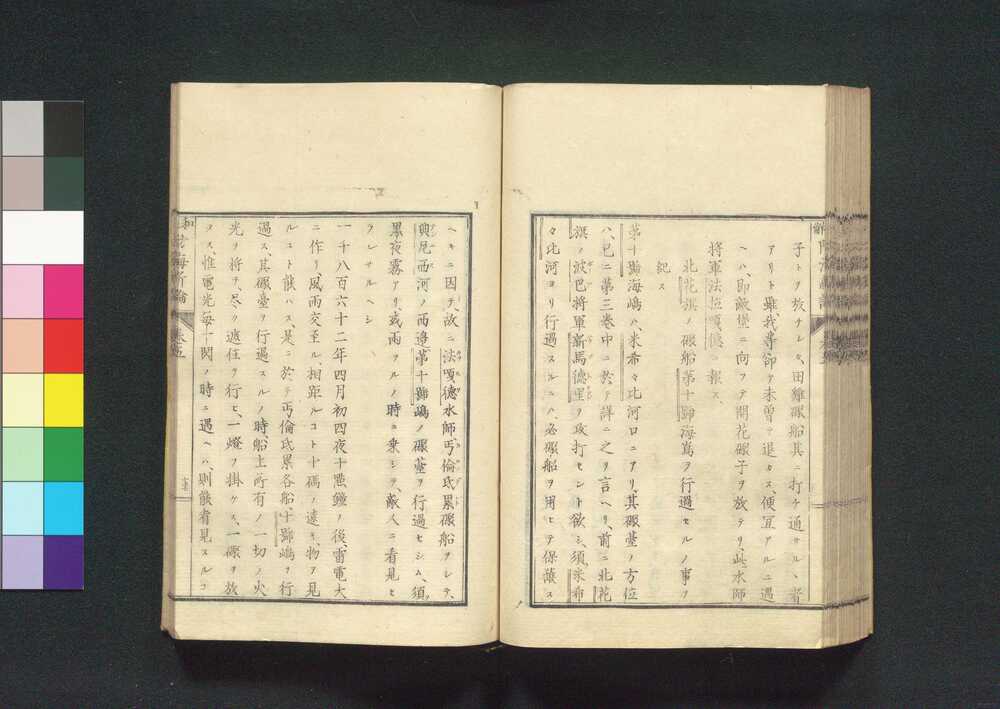 子トヲ放ナレタ、田雞礮船其ニ打チ通サル、者
アリト雖我尋卻テ未曾テ退カス、便宜アルニ遇
ヘハ、即敵營ニ向フテ開花礮子ヲ放テリ、此水師
將軍法拉嘎德ニ報ス、
北花旗ノ礮船第十號海嶌ヲ行過セルノ事ヲ
記ス
第十號海嶋ハ、米希々比河口ニアリ、其礮臺ノ方位
ハ、已ニ第三卷中ニ於テ詳ニ之ヲ言ヘリ、前ニ北花
旗ノ波巴將軍新馬德里ヲ攻打セント欲シ、須米希
々比河ヨリ行過スルニハ、必礮船ヲ用ヒテ保護ス
ヘキニ因テ、故ニ法嘎德水師、丐倫氏累礮船ヲシテ、
典尼西河ノ西邉第十號嶋ノ礮臺ヲ行過セシム、須
黒夜霧アリ、或雨フルノ時ニ乗シテ、敵人ニ看見セ
ラレサルヘシ
一千八百六十二年四月初四夜十點鐘ノ後、雷電大
ニ作リ、風雨交至ル相距ルコト十碼ノ遠キ、物ヲ見
ルコト能ハス、是ニ於テ丐倫氏累各船、十號嶋ヲ行
過ス、其礮臺ヲ行過スルノ時、船上所有ノ一切ノ火
光ヲ将テ、尽ク遮住ヲ行ヒ、一燈ヲ掛ケス、一礮ヲ放
タス、惟電光毎一閃ノ時ニ遇ヘハ、則能看見スルコ
防海新論